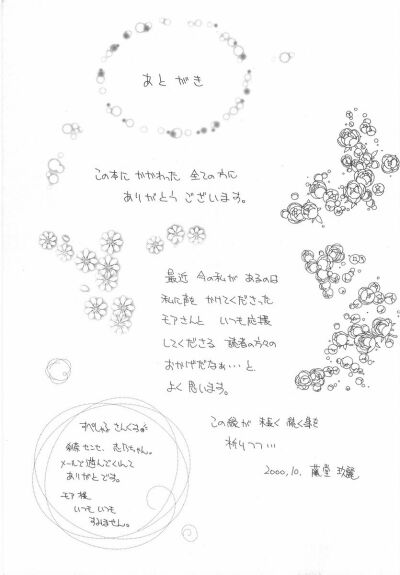 あとがき
この本に かかわった 全ての方に
ありがとう ございます。
最近 今の私が あるのは
私に声を かけてくださった
モアさんと いつも応援
してくださる 読者の方々の
おかげだなぁ…と
よく思います。
この縁が 末長く 続く事を
祈りつつ…
2000.10.
すぺしゃる さんくす
センセ、 ちゃん。
メールで遊んでくれて
ありがとです。
モア様
いつも いつも
すみません。